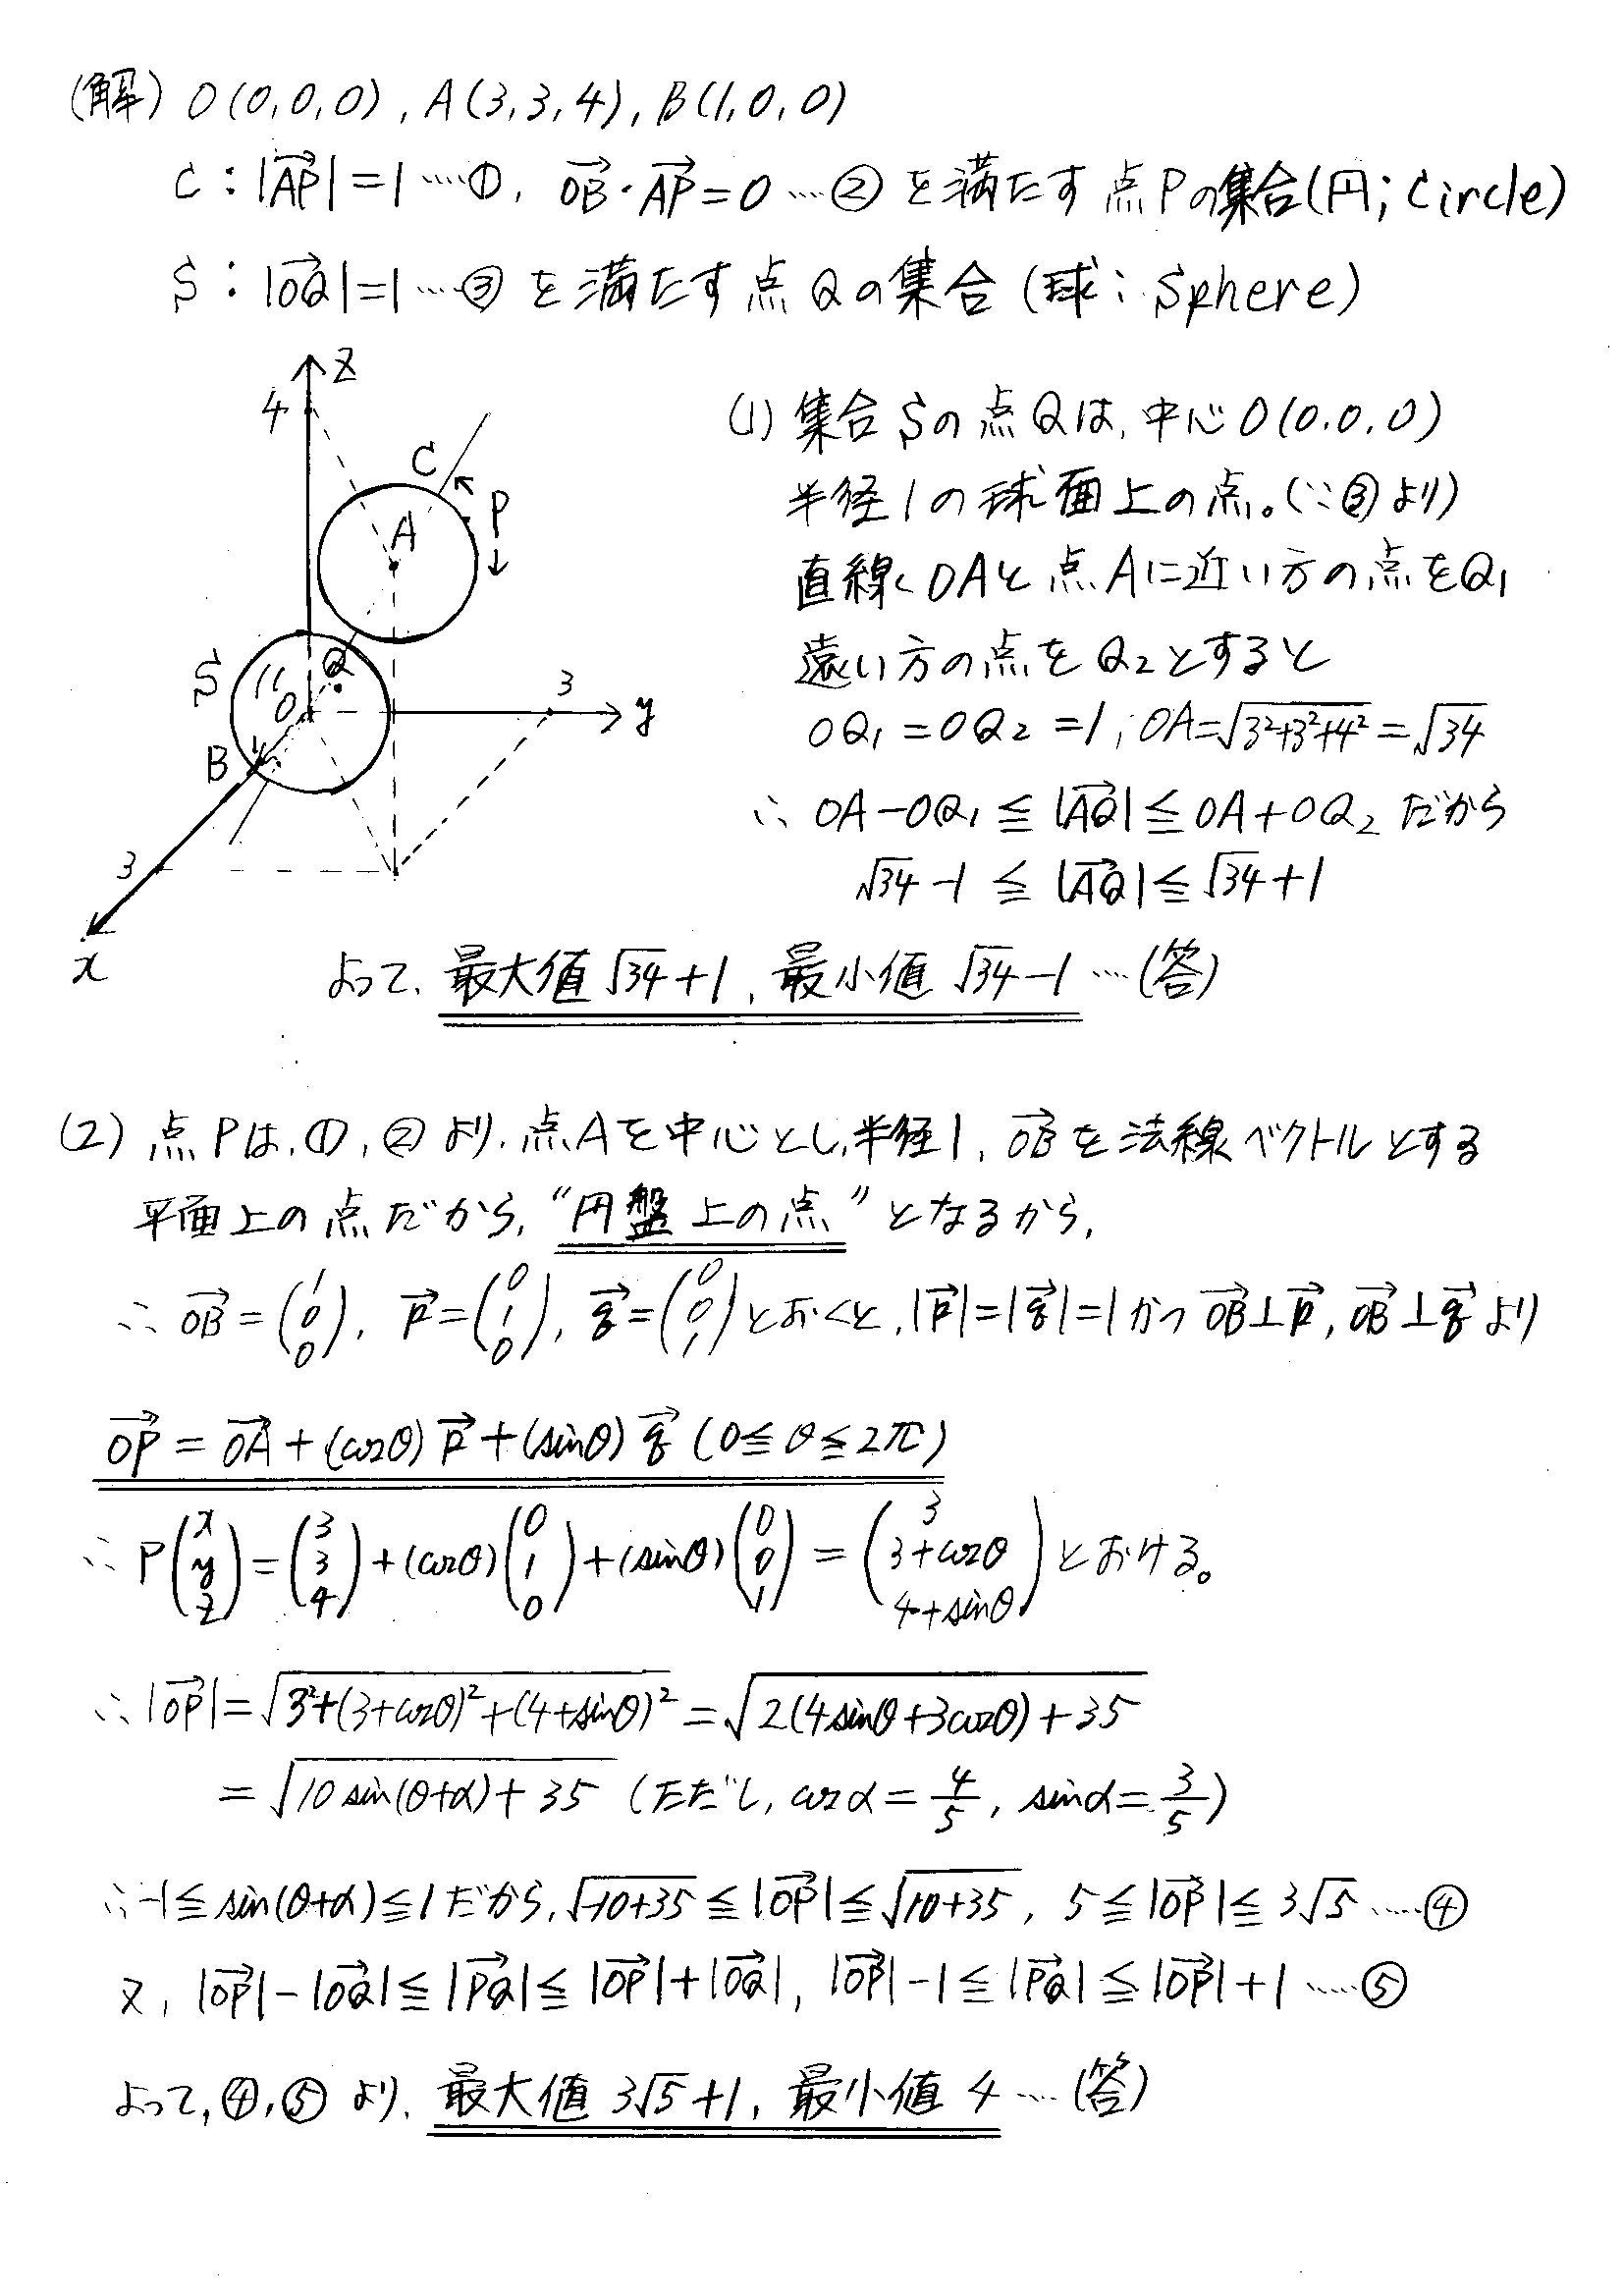 (解) O(0,0,0), A(3,3,4), B(1,0,0)
C:|→AP|=1 ……①, →OB・→AP=0 …② を満たす点Pの集合(円; Circle)
S:|→OQ|=1 …③ を満たす点Qの集合 (球; Sphere)
z
4
C
P
A
S
Q
O
B
3
y
3
x
(1) 集合Sの点Qは, 中心O(0,0,0)
半径1の球面上の点。(∵③より)
直線OAと点Aに近い方の点をQ₁
遠い方の点をQ₂とすると
OQ₁=OQ₂=1, OA=√(3²+3²+4²)=√34
∴ OA-OQ₁≦|→AQ|≦OA+OQ₂ だから
√34-1≦|→AQ|≦√34+1
よって, 最大値√34+1, 最小値√34-1 …(答)
(2) 点Pは,①,②より, 点Aを中心とし,半径1, →OBを法線ベクトルとする
平面上の点だから, “円盤上の点”となるから,
∴ →OB=(1 0 0), →p=(0 1 0), →q=(0 0 1)とおくと, |→p|=|→q|=1かつ →OB⊥→p, →OB⊥→qより
→OP=→OA+(cosθ)→p+(sinθ)→q (0≦θ≦2π)
∴ P(x y z)=(3 3 4)+(cosθ)(0 1 0)+(sinθ)(0 0 1)=(3 3+cosθ 4+sinθ)とおける。
∴|→OP|=√(3²+(3+cosθ)²+(4+sinθ)²)=√(2(4sinθ+3cosθ)+35)
=√(10sin(θ+α)+35) (ただし, cosα=4/5, sinα=3/5)
∴-1≦sin(θ+α)≦1だから,√(-10+35)≦|→OP|≦√(10+35), 5≦|→OP|≦3√5 ……④
又, |→OP|-|→OQ|≦|→PQ|≦|→OP|+|→OQ|, |→OP|-1≦|→PQ|≦|→OP|+1 ……⑤
よって,④,⑤より, 最大値 3√5+1, 最小値 4 …(答)